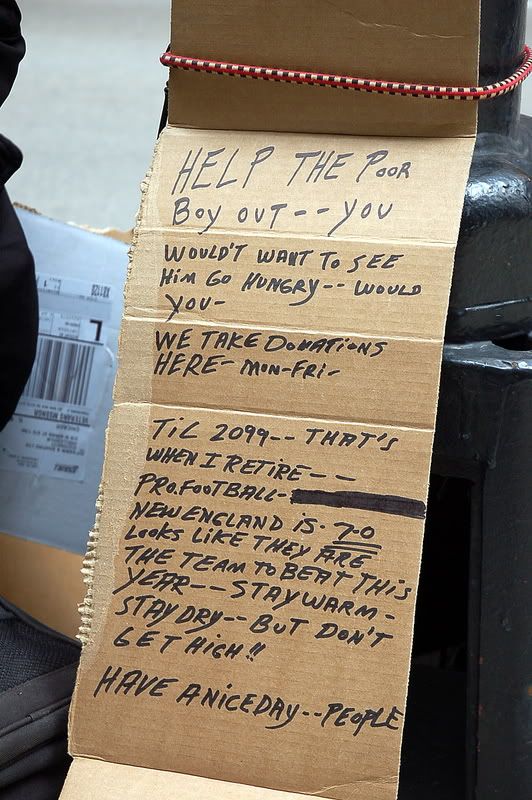 HELP THE POOR
BOY OUT -- YOU
WOULD'T WANT TO SEE
HIM GO HUNGRY -- WOULD
YOU-
WE TAKE DONATIONS
HERE- MON-FRI-
TIL 2099-- THAT'S
WHEN I RETIRE--
PRO.FOOTBALL-
NEW ENGLAND IS- 7-0
LOOKS LIKE THEY ARE
THE TEAM TO BEAT THIS
YEAR-- STAY WARM-
STAY DRY-- BUT DON'T
GET HIGH!!
HAVE A NICE DAY--PEOPLE
L